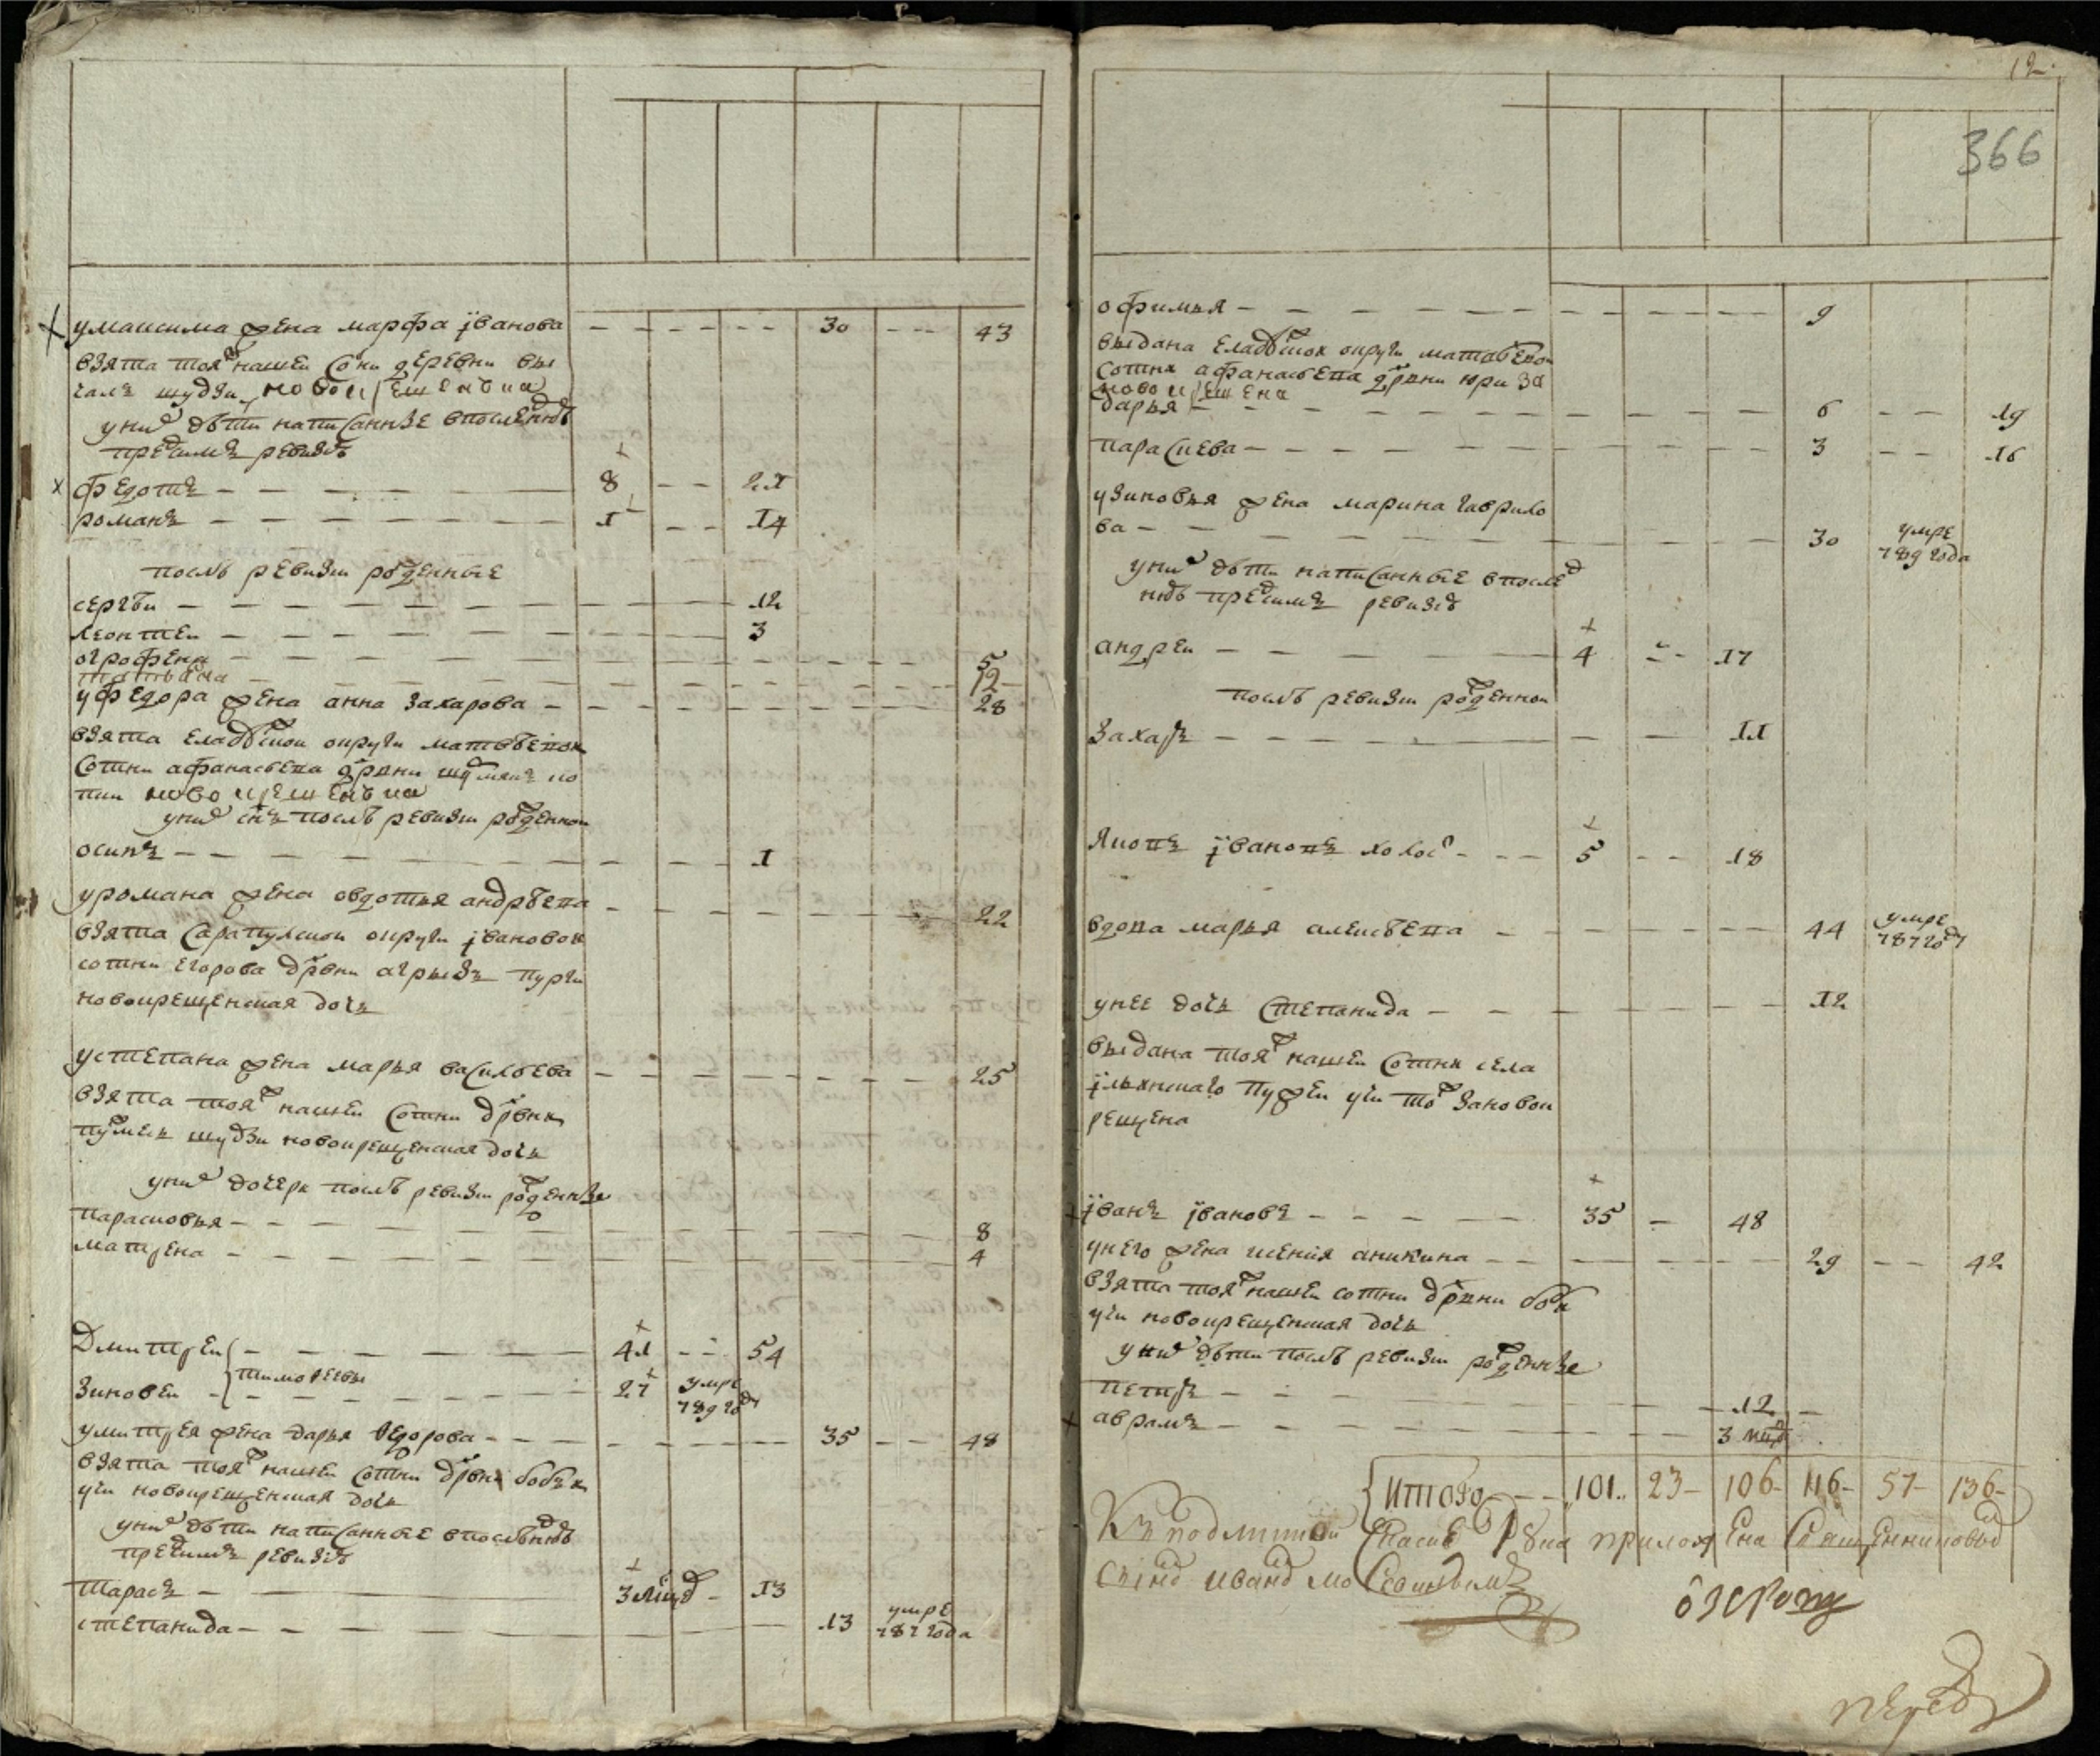 у максима жена марфа їванова — 30 — 43
взята тояж нашей сотни деревни вы
галъ шудзи новокрещенска
у них дети написанные в последнюю
пред сим ревизию
федотъ — 8 — 21
романъ — 1 — 14
после ревизии рожденные
сергеи — 12
леонтеи — 3
огрофена — 5
татьяна — 12
у федора жена анна захарова — 28
взята елабужской округи матвеевои
сотни афанасьева дрвни
новокрещенска
у них снъ после ревизии рожденнои
осипъ — 1
у романа жена овдотья андреева — 22
взята сарапулскои округи ївановои
сотни егорова дрвни агрызъ пурги
новокрещенская дочь
у степана жена марья васильева — 25
взята тояж нашей сотни дрвни
шудзи новокрещенская дочь
у них дочери после ревизии рожденные
парасковья — 8
матрена — 4
Дмитреи — 41 — 54
тимофеевы
зиновеи — 27 умре
789 году
у митрея жена дарья ѳедорова — 35 — 48
взята тояж нашей сотни дрвни бобья
учи новокрещенская дочь
у них дети написанные в последнюю
пред сим ревизию
тарасъ — 3 мцов — 13
степанида — 13 умре
787 года
12
366
офимья — 9
выдана елабужской округи матвеевои
сотни афанасьева дрвни юри за
новокрещена
дарья — 6 — 19
параскева — 3 — 16
у зиновья жена марина гаврило
ва — 30 умре
789 года
у них дети написанные в послед
нюю пред сим ревизию
андреи — 4 — 17
после ревизии рожденнои
захаръ — 11
яковъ ївановъ холос — 5 — 18
вдова марья алексеева — 44 умре
787 году
у нее дочь степанида — 12
выдана тояж нашей сотни села
їльинскаго пужеи учи тож за новок
рещена
їванъ ївановъ — 35 — 48
у него жена ксения аникина — 29 — 42
взята тояж нашей сотни дрвни бобья
учи новокрещенская дочь
у них дети после ревизии рожденные
петръ — 12
аврамъ — 3 нед
Итого — 101 23 106 116 57 136
К подлинной скаске рука приложена священниковым
сыном иваном